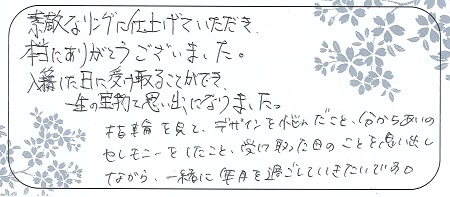 素敵なリングに仕上げていただき、
本当にありがとうございました。
入籍した日に受け取ることができ、
一生の宝物と思い出になりました。
指輪を見て、デザインを悩んだこと、分かちあいの
セレモニーをしたこと、受け取った日のことを思い出し
ながら、一緒に年月を過ごしていきたいです。